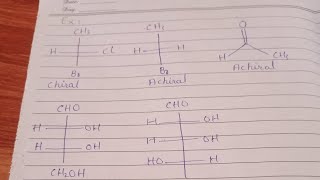 Ex:
CH₃ CH₃ O
H Cl H H H CH₃
Br Br Achiral
Chiral Achiral
CHO CHO
H OH H OH
H OH H OH
CH₂OH HO H